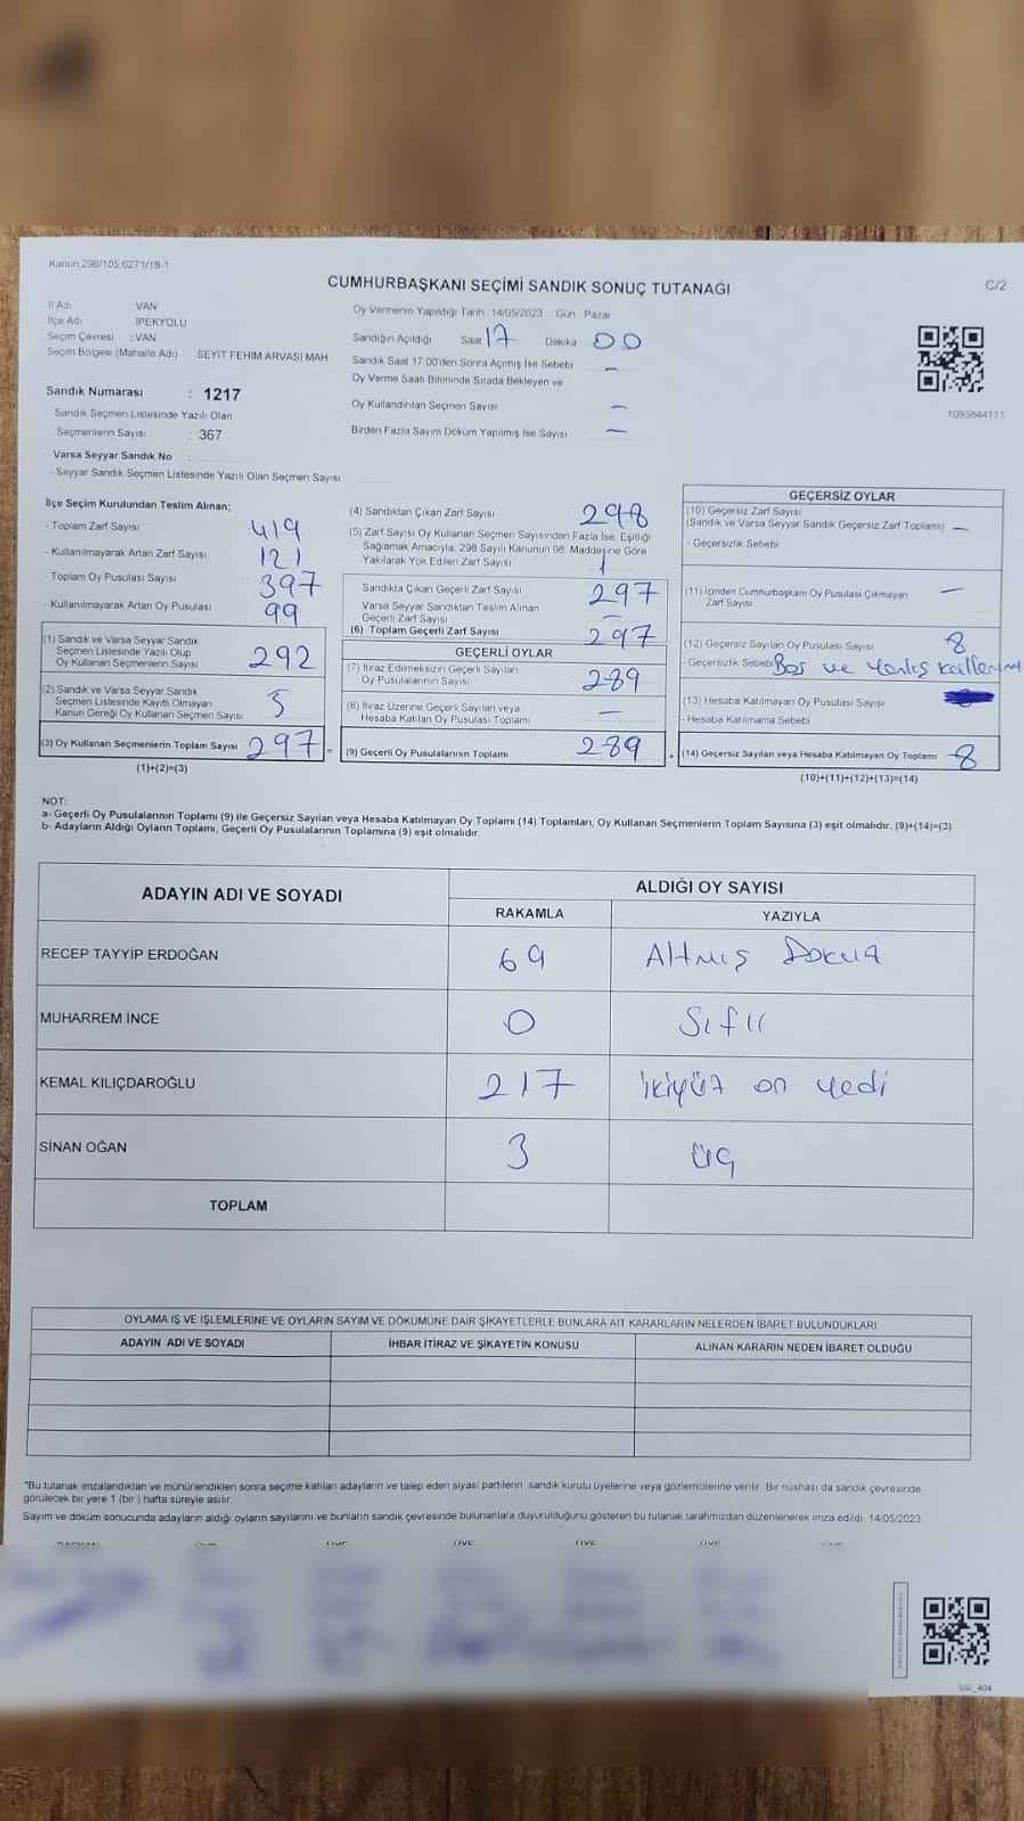 Kanun 298/105,6271/18-1
CUMHURBAŞKANI SEÇİMİ SANDIK SONUÇ TUTANAĞI
C/2
İl Adı : VAN
İlçe Adı İPEKYOLU
Seçim Çevresi : VAN
Seçim Bölgesi (Mahalle Adı) SEYİT FEHİM ARVASİ MAH
Sandık Numarası : 1217
Sandık Seçmen Listesinde Yazılı Olan
Seçmenlerin Sayısı : 367
Varsa Seyyar Sandık No :
- Seyyar Sandık Seçmen Listesinde Yazılı Olan Seçmen Sayısı
Oy Vermenin Yapıldığı Tarih 14/05/2023 Gün Pazar
Sandığın Açıldığı Saat 17 Dakika 00
Sandık Saat 17:00'den Sonra Açılmış İse Sebebi –
Oy Verme Saati Bitiminde Sırada Bekleyen ve
Oy Kullandırılan Seçmen Sayısı –
Birden Fazla Sayım Döküm Yapılmış İse Sayısı –
1093844111
İlçe Seçim Kurulundan Teslim Alınan;
- Toplam Zarf Sayısı 419
- Kullanılmayarak Artan Zarf Sayısı 121
- Toplam Oy Pusulası Sayısı 397
- Kullanılmayarak Artan Oy Pusulası 99
(1) Sandık ve Varsa Seyyar Sandık
Seçmen Listesinde Yazılı Olup
Oy Kullanan Seçmenlerin Sayısı 292
(2) Sandık ve Varsa Seyyar Sandık
Seçmen Listesinde Kayıtlı Olmayan
Kanun Gereği Oy Kullanan Seçmen Sayısı 5
(3) Oy Kullanan Seçmenlerin Toplam Sayısı 297 =
(1)+(2)=(3)
(4) Sandıktan Çıkan Zarf Sayısı 298
(5) Zarf Sayısı Oy Kullanan Seçmen Sayısından Fazla İse, Eşitliği
Sağlamak Amacıyla, 298 Sayılı Kanunun 98. Maddesine Göre
Yakılarak Yok Edilen Zarf Sayısı 1
Sandıkta Çıkan Geçerli Zarf Sayısı 297
Varsa Seyyar Sandıktan Teslim Alınan
Geçerli Zarf Sayısı –
(6) Toplam Geçerli Zarf Sayısı 297
GEÇERLİ OYLAR
(7) İtiraz Edilmeksizin Geçerli Sayılan
Oy Pusulalarının Sayısı 289
(8) İtiraz Üzerine Geçerli Sayılan veya
Hesaba Katılan Oy Pusulası Toplamı –
(9) Geçerli Oy Pusulalarının Toplamı 289 +
GEÇERSİZ OYLAR
(10) Geçersiz Zarf Sayısı
(Sandık ve Varsa Seyyar Sandık Geçersiz Zarf Toplamı) –
- Geçersizlik Sebebi
(11) İçinden Cumhurbaşkanı Oy Pusulası Çıkmayan
Zarf Sayısı –
(12) Geçersiz Sayılan Oy Pusulası Sayısı 8
- Geçersizlik Sebebi Boş ve Yanlış
(13) Hesaba Katılmayan Oy Pusulası Sayısı
- Hesaba Katılmama Sebebi
(14) Geçersiz Sayılan veya Hesaba Katılmayan Oy Toplamı 8
(10)+(11)+(12)+(13)=(14)
NOT:
a- Geçerli Oy Pusulalarının Toplamı (9) ile Geçersiz Sayılan veya Hesaba Katılmayan Oy Toplamı (14) Toplamları, Oy Kullanan Seçmenlerin Toplam Sayısına (3) eşit olmalıdır. (9)+(14)=(3)
b- Adayların Aldığı Oyların Toplamı, Geçerli Oy Pusulalarının Toplamına (9) eşit olmalıdır.
ADAYIN ADI VE SOYADI
ALDIĞI OY SAYISI
RAKAMLA YAZIYLA
RECEP TAYYİP ERDOĞAN 69 Altmış Dokuz
MUHARREM İNCE 0 Sıfır
KEMAL KILIÇDAROĞLU 217 ikiyüz on yedi
SİNAN OĞAN 3 üç
TOPLAM
OYLAMA İŞ VE İŞLEMLERİNE VE OYLARIN SAYIM VE DÖKÜMÜNE DAİR ŞİKAYETLERLE BUNLARA AİT KARARLARIN NELERDEN İBARET BULUNDUKLARI
ADAYIN ADI VE SOYADI İHBAR İTİRAZ VE ŞİKAYETİN KONUSU ALINAN KARARIN NEDEN İBARET OLDUĞU
*Bu tutanak imzalandıktan ve mühürlendikten sonra seçime katılan adayların ve talep eden siyasi partilerin sandık kurulu üyelerine veya gözlemcilerine verilir. Bir nüshası da sandık çevresinde
görülecek bir yere 1 (bir) hafta süreyle asılır.
Sayım ve döküm sonucunda adayların aldığı oyların sayılarını ve bunların sandık çevresinde bulunanlara duyurulduğunu gösteren bu tutanak tarafımızdan düzenlenerek imza edildi. 14/05/2023